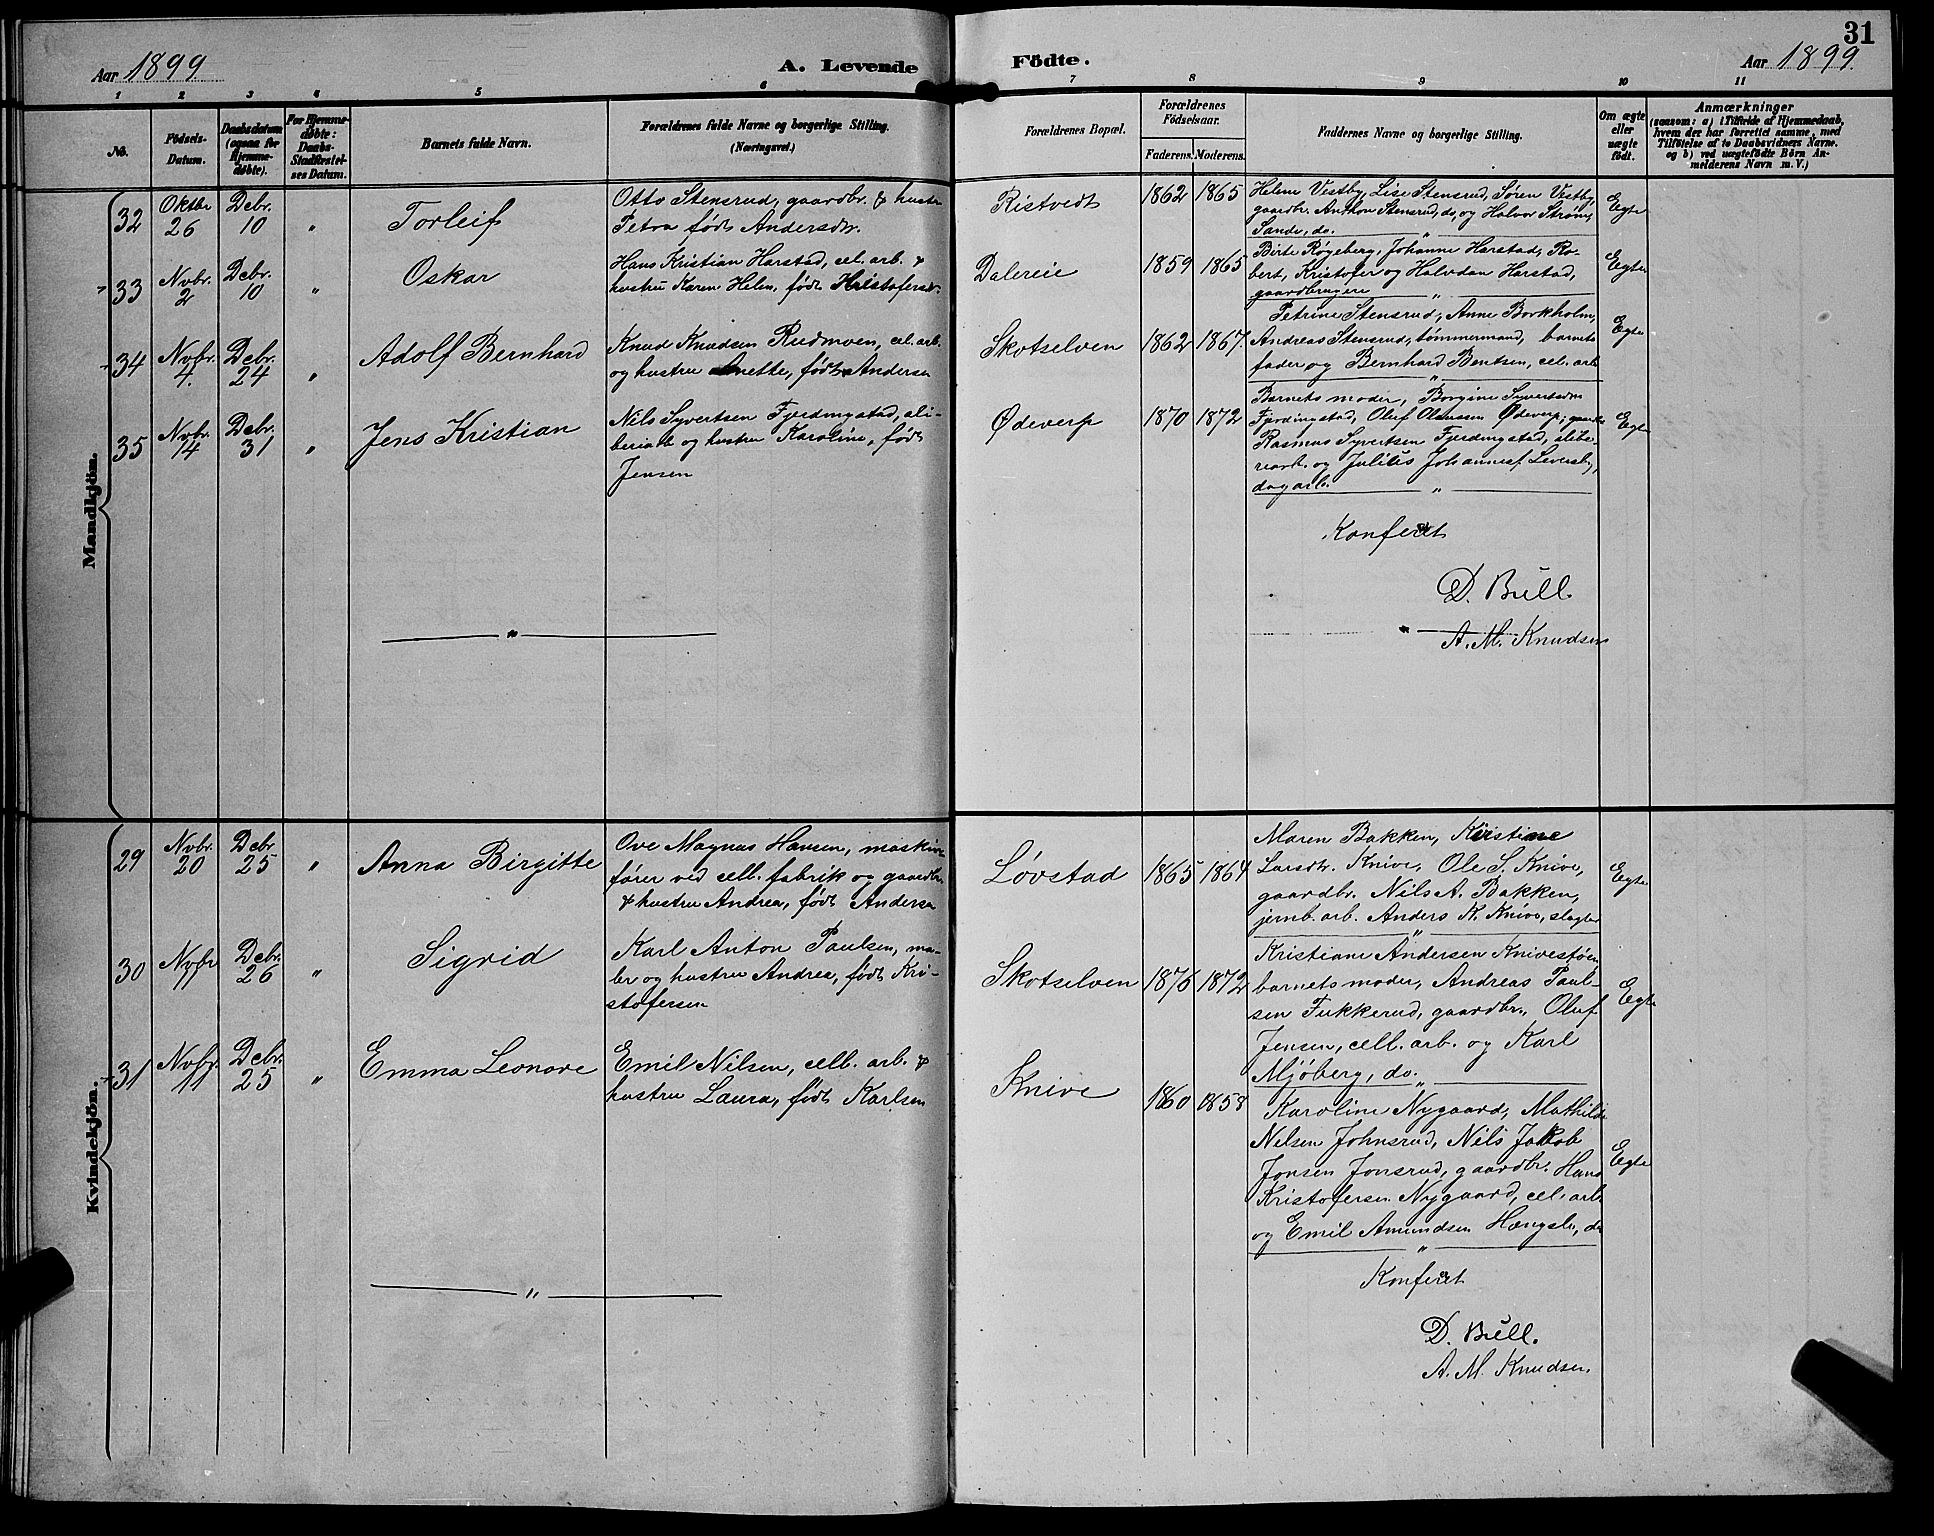 31
Aar 1899
A. Levende Födte.
Aar 1899.
1 2 3 4 5 6 7 8 9 10 11
No.
Födsels-
Datum.
Daabsdatum
(ogsaa for
Hjemme-
döbte).
For Hjemme-
döbte:
Daabs-
Stadfæstel-
ses Datum.
Barnets fulde Navn.
Forældrenes fulde Navne og borgerlige Stilling.
(Næringsvei.)
Forældrenes Bopæl.
Forældrenes
Födselsaar.
Faderens. Moderens.
Faddernes Navne og borgerlige Stilling.
Om ægte
eller
uægte
födt.
Anmærkninger
(saasom: a) i Tilfælde af Hjemmedaab,
hvem der har forrettet samme, med
Tilföielse af to Daabsvidners Navne.
og b) ved uægtefödte Börn An-
melderens Navn m. V.)
Mandkjön.
32
Oktbr
26
Debr.
10
"
Torleif
Otto Stensrud, gaardbr. & hustru
Petra født Andersdtr.
Ristvedt
1862
1865
Helene Vestby, Lise Stensrud, Søren Vestby,
gaardbr. Anthon Stensrud, do, og Halvor Strøm,
Sande, do.
"
Egte
33
Novbr.
2
Debr.
10
"
Oskar
Hans Kristian Harstad, cel. arb. &
hustru Karen Helene, født Kristofersdr.
Dalereie
1859
1865
Birte Røgeberg, Johanne Harstad, Ro-
bert, Kristofer og Halvdan Harstad,
gaardbrugere
"
Egte
34
Novbr.
4.
Debr.
24
"
Adolf Bernhard
Knud Knudsen Rudmoen, cel. arb.
og hustru Anette, født Andersen
Skotselven
1862
1867.
Petrine Stensrud, Anne Borkholm,
Andreas Stensrud, tømmermand, barnets
fader og Bernhard Bentsen, cel. arb
"
Egte
35
Novbr.
14
Debr.
31
"
Jens Kristian
Nils Syvertsen Fjerdingstad, sli-
beriarb og hustru Karoline, født
Jensen
Ødeverp
1870
1872
Barnets moder, Borgine Syvertsdtr
Fjerdingstad, Oluf Olaussen Ødeverp, gaardbr
Rasmus Syvertsen Fjerdingstad, slibe-
riarb. og Julius Johannesf. Leversby,
dagarb.
"
Egte
Konferet
D. Bull.
A. M. Knudsen
"
Kvindekjön.
29
Novbr.
20
Debr
25
"
Anna Birgitte
Ove Magnus Hansen, maskin-
fører ved cell. fabrik og gaardbr.
& hustru Andrea, født Andersen
Løvstad
1865
1864
Maren Bakken, Kristiane
Larsdtr. Knive, Ole S. Knive,
gaardbr. Nils A. Bakken,
jernb. arb. Anders K. Knive, slagter
"
Egte
30
Novbr
11
Debr.
26
"
Sigrid
Karl Anton Paulsen, ma-
ler og hustru Andrea, født Kri-
stofersen
Skotselven
1876
1872
Kristiane Andersen Knivestøen
barnets moder, Andreas Paul-
sen Fukkerud, gaardbr., Oluf
Jensen, cell. arb. og Karl
Mjøberg, do.
"
Egte
31
Novbr.
11
Debr.
25
"
Emma Leonore
Emil Nilsen, cell. arb. &
hustru Laura, født Karlsen
Knive
1860
1858
Karoline Nygaard, Mathilde
Nelsen Johnsrud, Nils Jakob
Jonsen Jonsrud, gaardbr. Hans
Kristofersen Nygaard, cel. arb
og Emil Amundsen Hængsle, do
"
Egte
"
Konferet
D. Bull.
A. M. Knudsen.